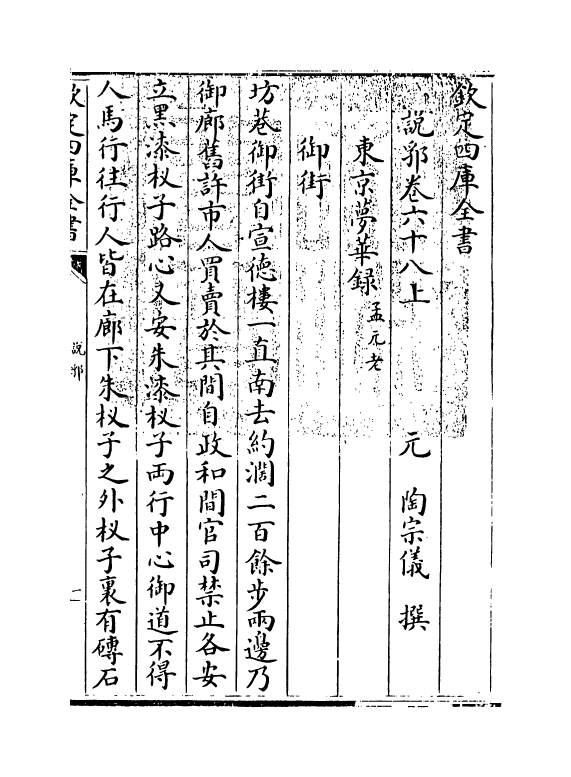 欽定四庫全書
說郛卷六十八上
元 陶宗儀 撰
東京夢華録 孟元老
御街
坊巷御街自宣德樓一直南去約濶二百餘步兩邊乃
御廊舊許市人買賣於其間自政和間官司禁止各安
立黑漆杈子路心又安朱漆杈子兩行中心御道不得
人馬行往行人皆在廊下朱杈子之外杈子裏有磚石
欽定四庫全書
說郛